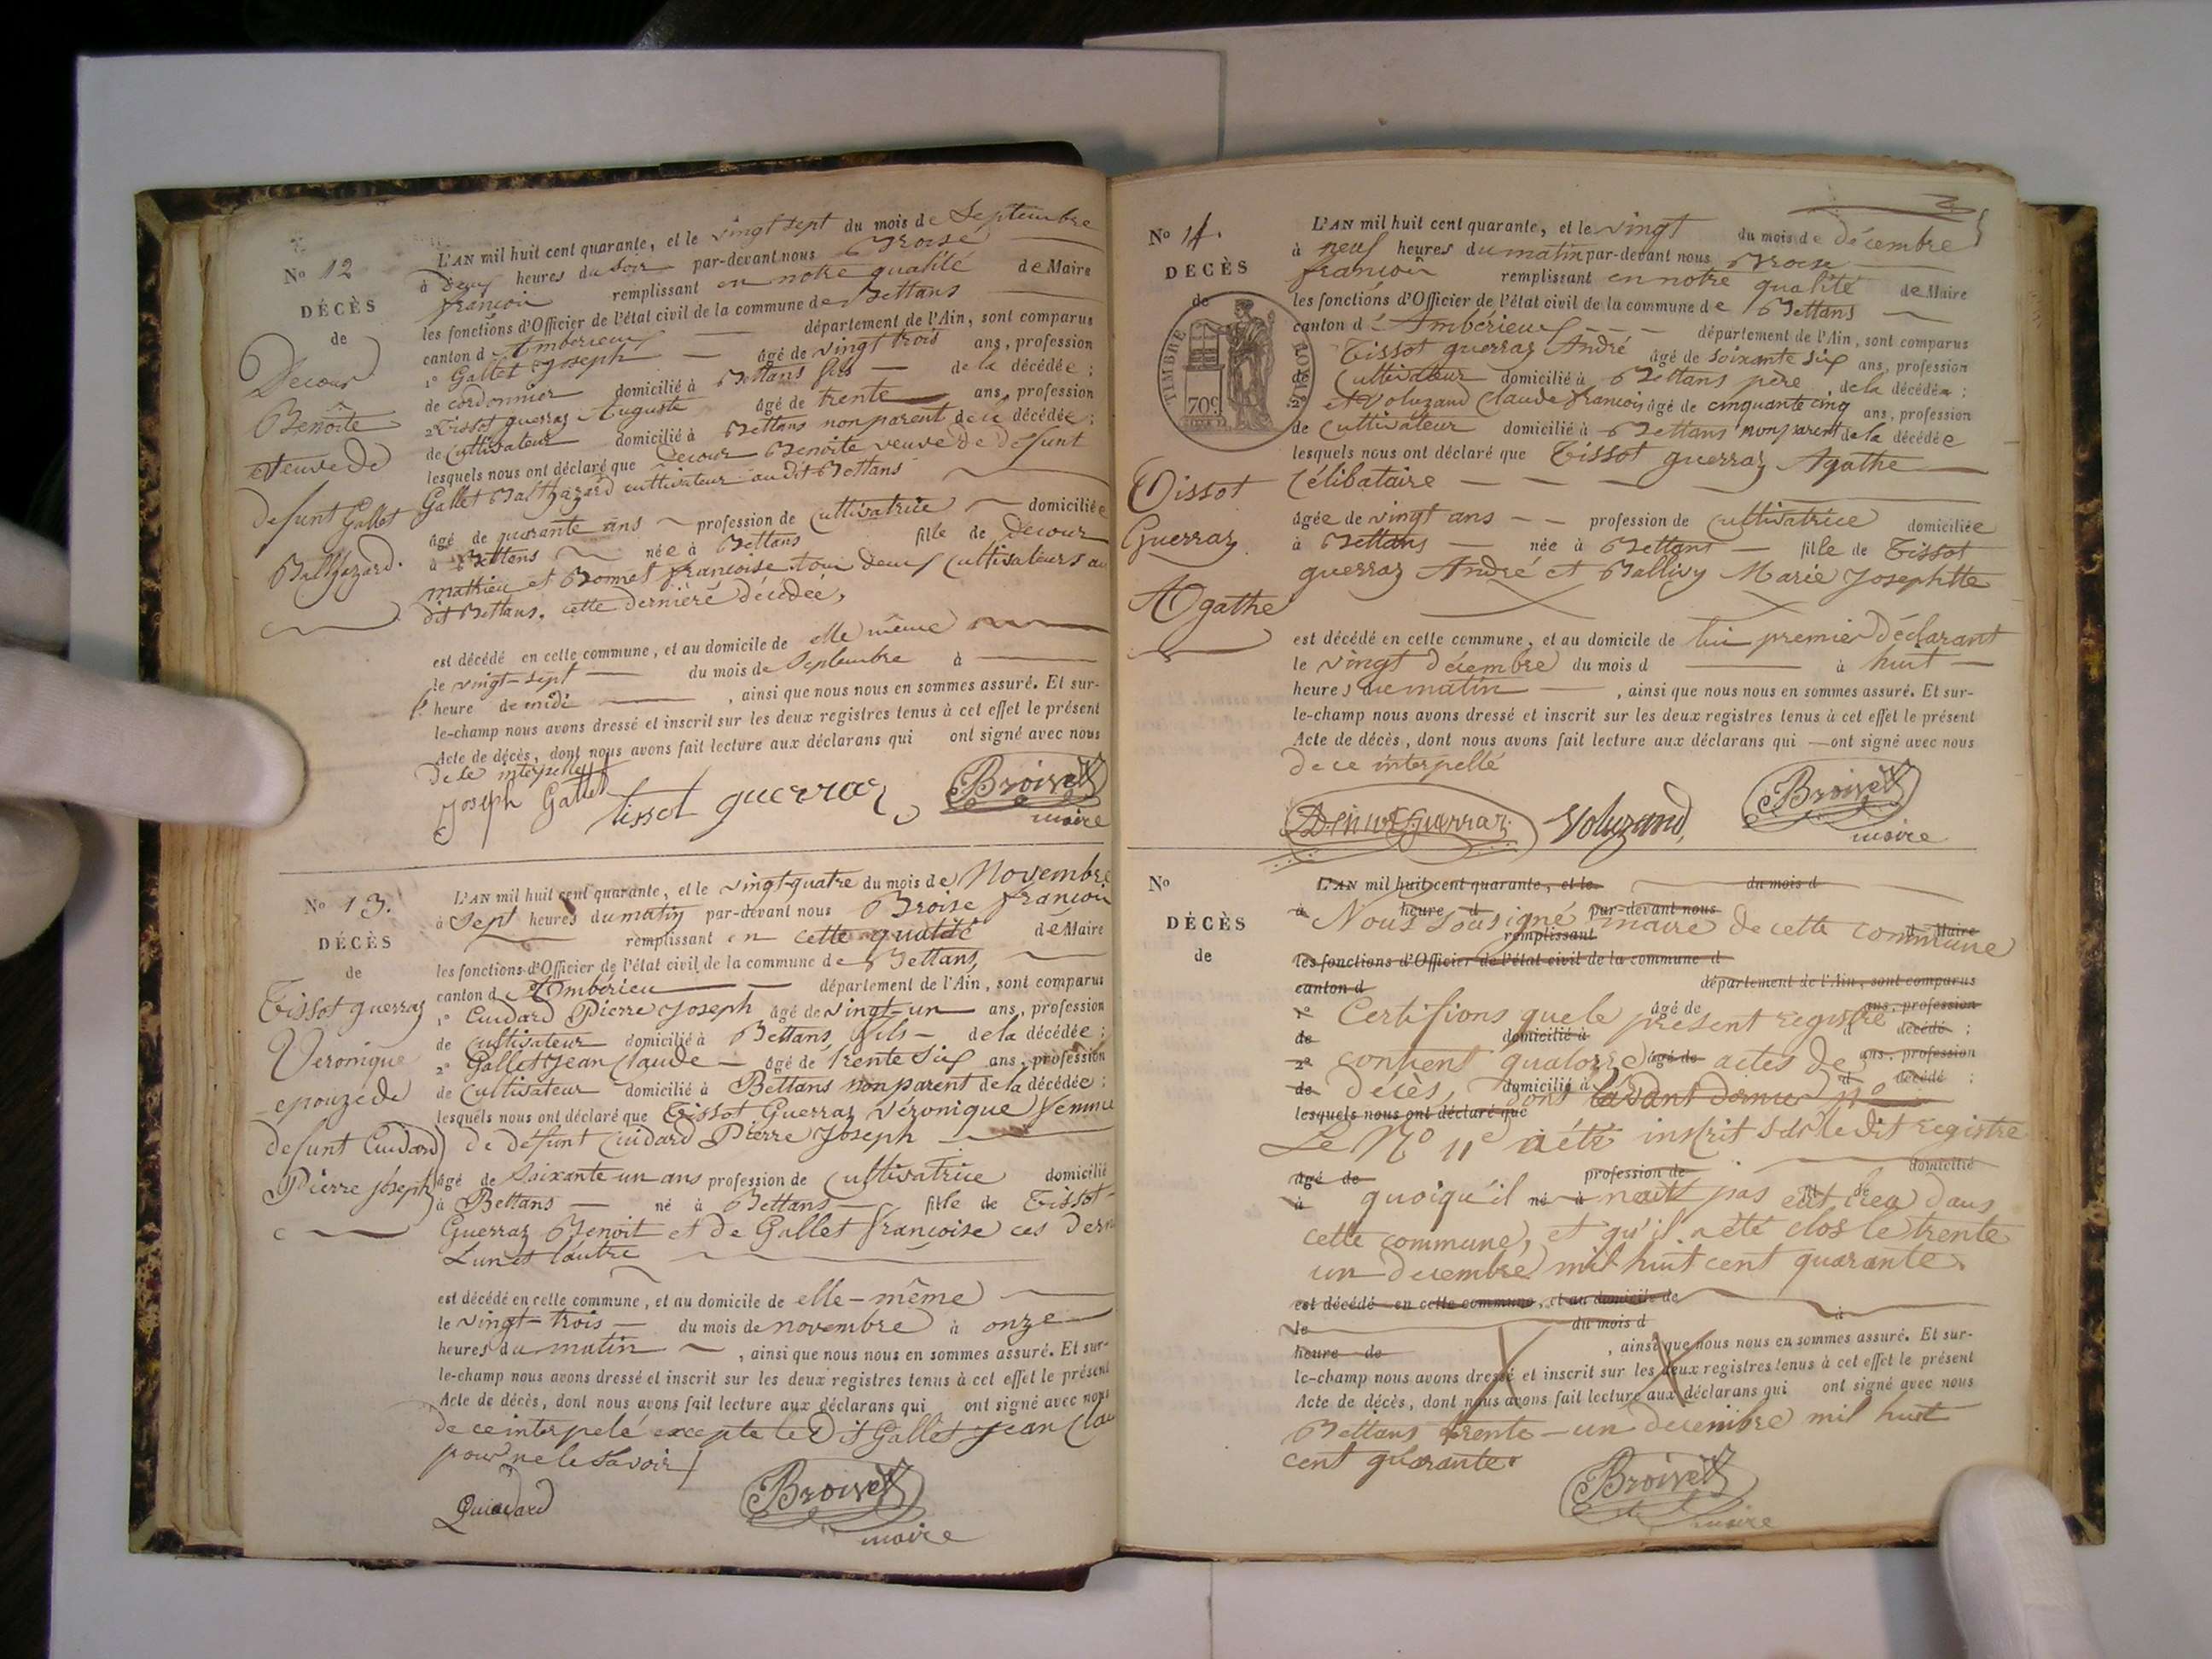 N° 12
DÉCÈS
de
Decour
Benoîte
veuve de
defunt Gallet
Balthazard.
L'AN mil huit cent quarante, et le vingt sept du mois de Septembre
à deux heures du Soir par-devant nous Broise
françois remplissant en notre qualité de Maire
les fonctions d'Officier de l'état civil de la commune de Bettans
canton d'Ambérieux département de l'Ain, sont comparus
1° Gallet Joseph âgé de vingt trois ans, profession
de cordonnier domicilié à Bettans fils de la décédée ;
2° Tissot guerraz Auguste âgé de trente ans, profession
de Cultivateur domicilié à Bettans non parent de la décédée ;
lesquels nous ont déclaré que Decour Benoite veuve de defunt
Gallet Balthazard cultivateur au dit Bettans
âgé de quarante ans profession de Cultivatrice domiciliée
à Bettans née à Bettans fille de Decour
mathieu et Bonnet françoise tous deux Cultivateurs au
dit Bettans, cette dernière décédée,
est décédé en cette commune, et au domicile de elle même
le vingt-sept du mois de Septembre à
heure de midi , ainsi que nous nous en sommes assuré. Et sur-
le-champ nous avons dressé et inscrit sur les deux registres tenus à cet effet le présent
Acte de décès, dont nous avons fait lecture aux déclarans qui ont signé avec nous
de ce interpellé
Joseph Gallet tissot guerraz Broise
maire
N° 13.
DÉCÈS
de
Tissot guerraz
Veronique
epouze de
defunt Cuidard
Pierre joseph
L'AN mil huit cent quarante, et le vingt-quatre du mois de Novembre
à Sept heures du matin par-devant nous Broise françois
remplissant en cette qualité de Maire
les fonctions d'Officier de l'état civil de la commune de Bettans,
canton d'Ambérieu département de l'Ain, sont comparus
1° Cuidard Pierre Joseph âgé de vingt-un ans, profession
de Cultivateur domicilié à Bettans, fils de la décédée ;
2° Gallet Jean Claude âgé de trente Six ans, profession
de Cultivateur domicilié à Bettans non parent de la décédée ;
lesquels nous ont déclaré que Tissot Guerraz Véronique femme
de défunt Cuidard Pierre Joseph
âgé de Soixante-un ans profession de Cultivatrice domicilié
à Bettans né à Bettans fille de Tissot-
Guerraz Benoit et de Gallet françoise ces dern
L'un et l'autre
est décédé en cette commune, et au domicile de elle-même
le vingt-trois du mois de novembre à onze
heures du matin , ainsi que nous nous en sommes assuré. Et sur-
le-champ nous avons dressé et inscrit sur les deux registres tenus à cet effet le présent
Acte de décès, dont nous avons fait lecture aux déclarans qui ont signé avec nous
de ce interpelé excepte le Dit Gallet Jean Clau
pour ne le Savoir
Quidard Broise
maire
N° 14.
DÉCÈS
de
TIMBRE ROYAL
70c
Tissot
Guerraz
Agathe
L'AN mil huit cent quarante, et le vingt du mois de décembre
à neuf heures du matin par-devant nous Broise
françois remplissant en notre qualité de Maire
les fonctions d'Officier de l'état civil de la commune de Bettans
canton d'Ambérieux département de l'Ain, sont comparus
Tissot guerraz André âgé de soixante six ans, profession
de Cultivateur domicilié à Bettans père de la décédée ;
2° et Voluzand Claude francois âgé de cinquante cinq ans, profession
de Cultivateur domicilié à Bettans non parent de la décédée
lesquels nous ont déclaré que Tissot guerraz Agathe
Célibataire
âgée de vingt ans profession de Cultivatrice domiciliée
à Bettans née à Bettans fille de Tissot
guerraz André et Ballivy Marie Josephtte
est décédé en cette commune, et au domicile de lui premier déclarant
le vingt décembre du mois d à huit
heures du matin , ainsi que nous nous en sommes assuré. Et sur-
le-champ nous avons dressé et inscrit sur les deux registres tenus à cet effet le présent
Acte de décès, dont nous avons fait lecture aux déclarans qui ont signé avec nous
de ce interpellé
Voluzand, Broise
maire
N°
DÉCÈS
de
L'AN mil huit cent quarante, et le du mois d
à heure d par-devant nous
Nous Sousigné maire de cette commune
remplissant d Maire
les fonctions d'Officier de l'état civil de la commune d
canton d département de l'Ain, sont comparus
1° âgé de ans, profession
Certifions que le présent registre
de domicilié à d décédé ;
2° âgé de ans, profession
contient quatorze actes de
de domicilié à d décédé ;
décès, dont
lesquels nous ont déclaré que
Le N° 11e a été inscrit sur le dit registre
âgé de profession de domicilié
à né à fil de
quoiqu'il n'ait pas eut lieu dans
cette commune, et qu'il a été clos le trente
un décembre mil huit cent quarante.
est décédé en cette commune, et au domicile de
le du mois d à
heure de , ainsi que nous nous en sommes assuré. Et sur-
le-champ nous avons dressé et inscrit sur les deux registres tenus à cet effet le présent
Acte de décès, dont nous avons fait lecture aux déclarans qui ont signé avec nous
Bettans trente-un decembre mil huit
cent quarante.
Broise
maire